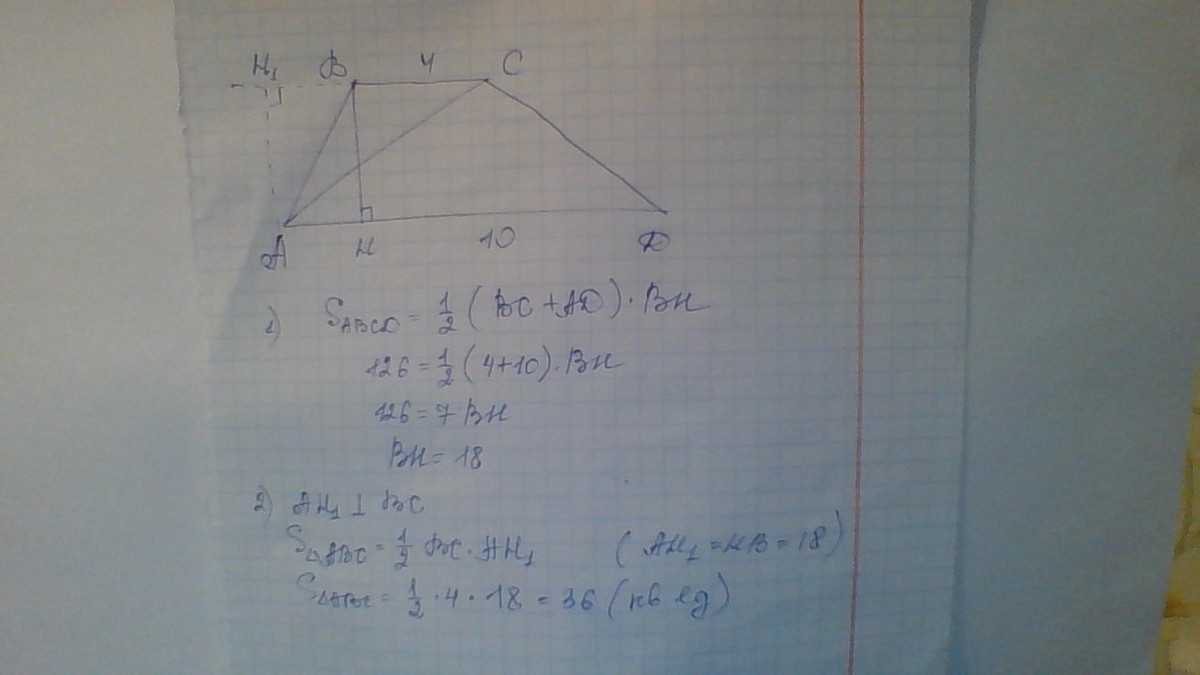 H₁ B 4 C
A H 10 D
1) S_ABCD = 1/2 (BC + AD) · BH
126 = 1/2 (4+10) · BH
126 = 7 BH
BH = 18
2) AH₁ ⊥ BC
S△ABC = 1/2 BC · AH₁ (AH₁ = HB = 18)
S△ABC = 1/2 · 4 · 18 = 36 (кв ед)